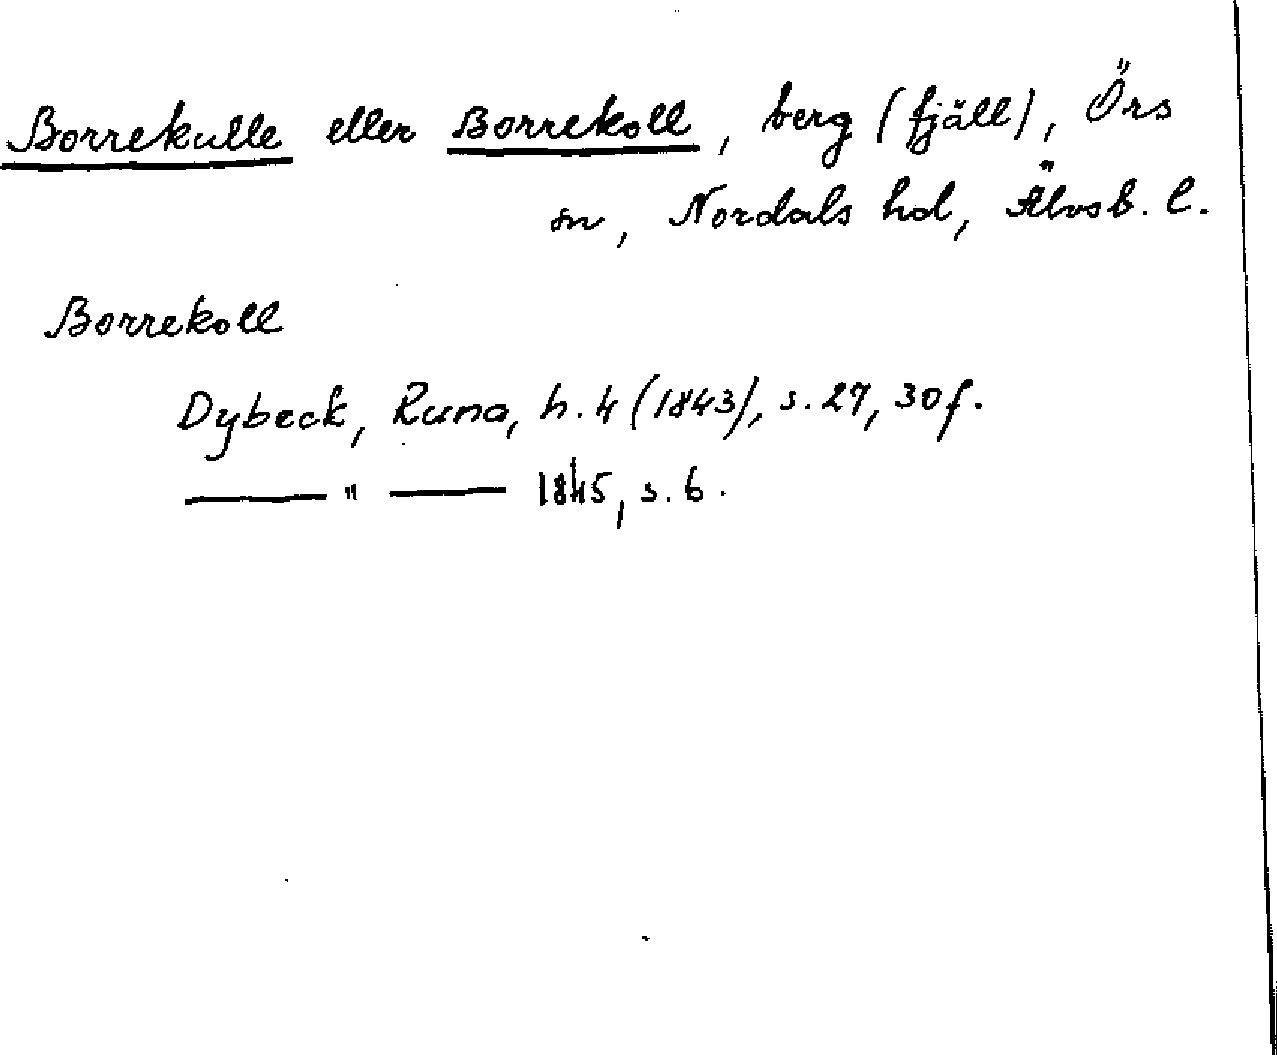 Borrekulle eller Borrekoll, berg (fjäll), Örs
sn, Nordals hd, Älvsb. l.
Borrekoll
Dybeck, Runa, h. 4 (1843), s. 27, 30 f.
—— " —— 1845, s. 6.